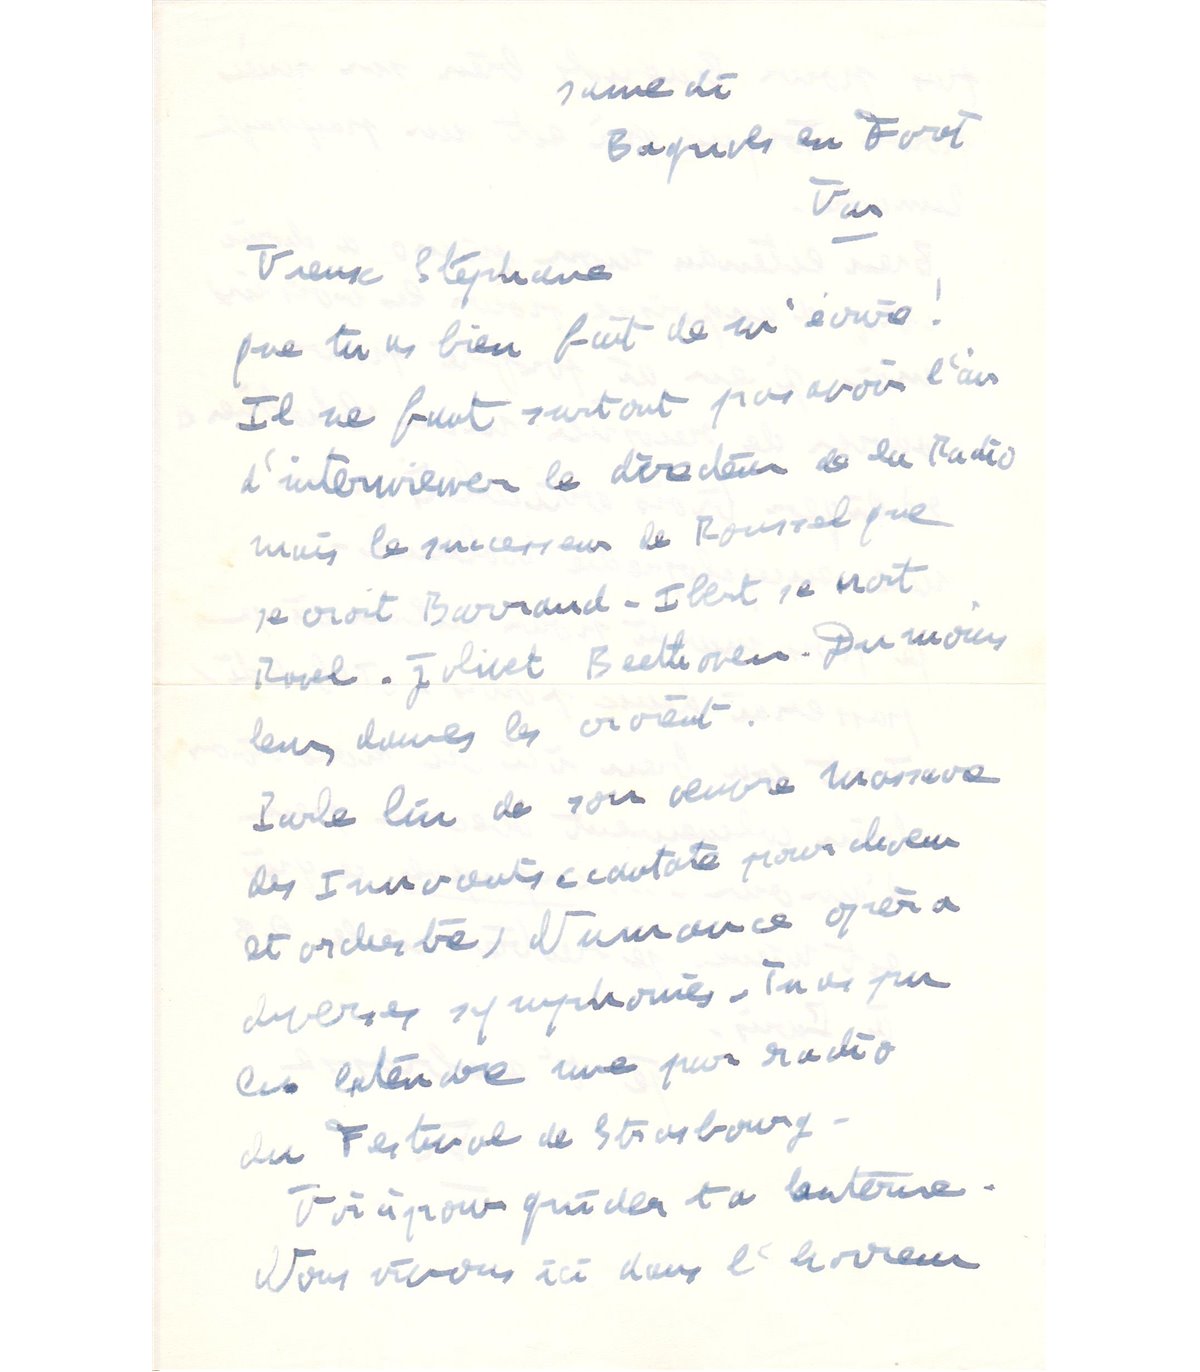 samedi
Bagnols en Foret
Var
Vieux Stéphane
que tu as bien fait de m'écrire !
Il ne faut surtout pas avoir l'air
d'interviewer le directeur de la Radio
mais le successeur de Roussel que
se croit Barraud - Ibert se croit
Ravel - Jolivet Beethoven - Du moins
leurs dames les croient.
Parle lui de son oeuvre Massacre
des Innocents (cantate pour choeur
et orchestre) Numance opéra
diverses symphonies - Tu as pu
en entendre une par radio
du Festival de Strasbourg -
Voilà pour guider ta lanterne -
Nous vivons ici dans l'horreur